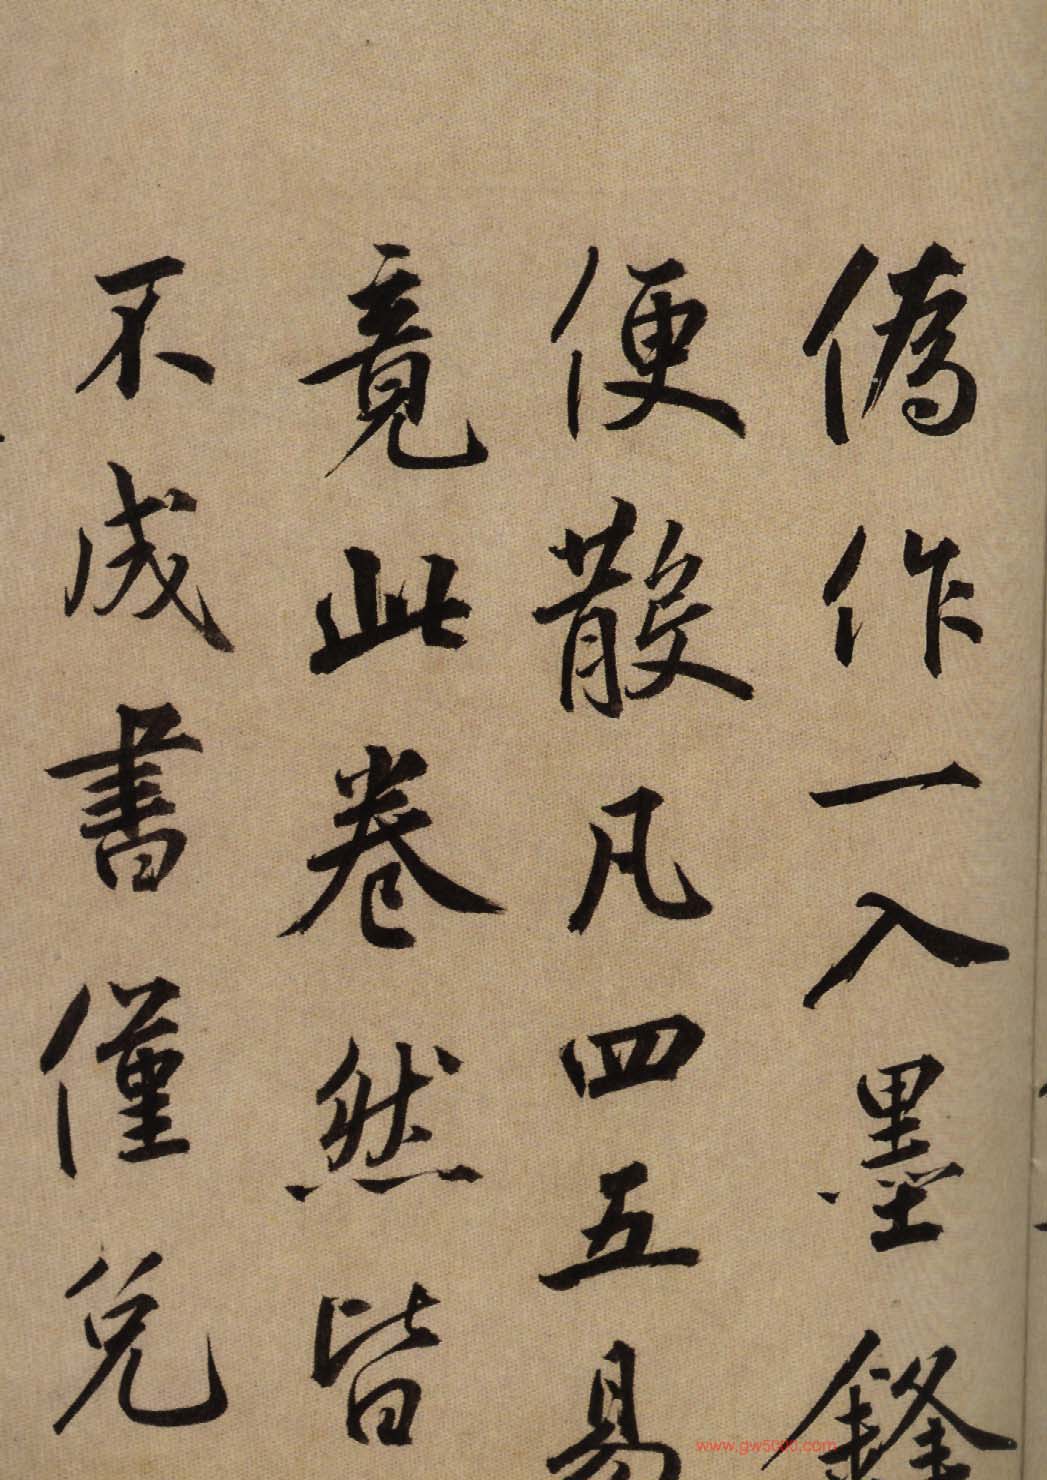 偽作一入墨鋒
便散凡四五易
竟此卷然皆
不成書僅免
www.gw5000.com